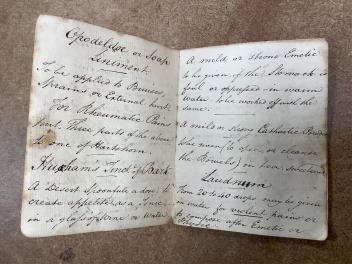 Opodeldoc or Soap
Liniment
To be applied to Bruises,
Sprains or External hurt.
For Rheumatic Pains
Three parts of the above
to one of Hartshorn.
Huxhams Tinct. of Bark
A Desert Spoonfule a dose; to
create appetite; as a Tonic
in a glass of wine or Water
A mild or strong Emetic
to be given if the Stomach is
foul or oppressed in warm
water to be worked off with the
same.
A mild or strong Cathartic
to open or cleanse
the Bowels; in tea
Laudnum
From 20 to 40 drops may be given
in water for violent pains or
to compose after Emetic or
Physic